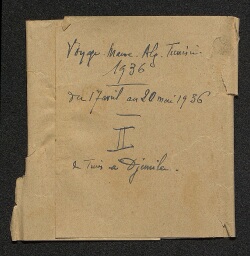 Voyage Maroc. Alg. Tunisie
1936
du 17 avril au 20 mai 1936
II
de Tunis à Djemila.